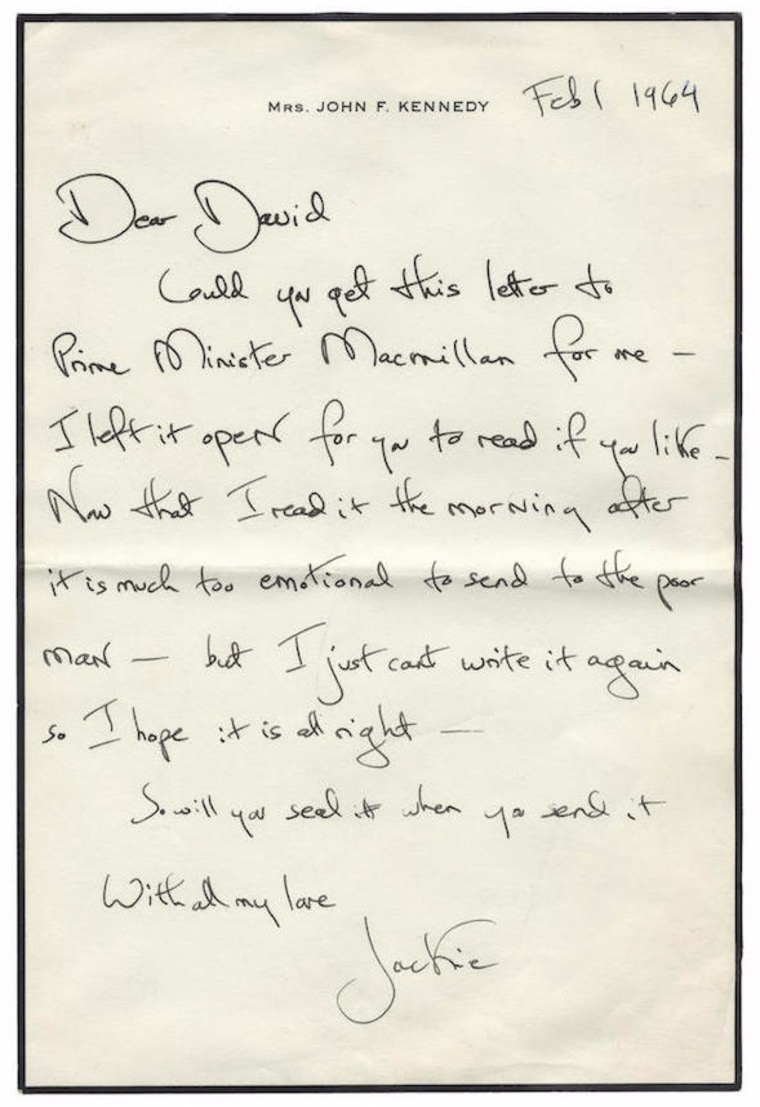 MRS. JOHN F. KENNEDY Feb 1 1964
Dear David
Could you get this letter to
Prime Minister Macmillan for me —
I left it open for you to read if you like –
Now that I read it the morning after
it is much too emotional to send to the poor
man — but I just cant write it again
so I hope it is all right —
So will you seal it when you send it
With all my love
Jackie